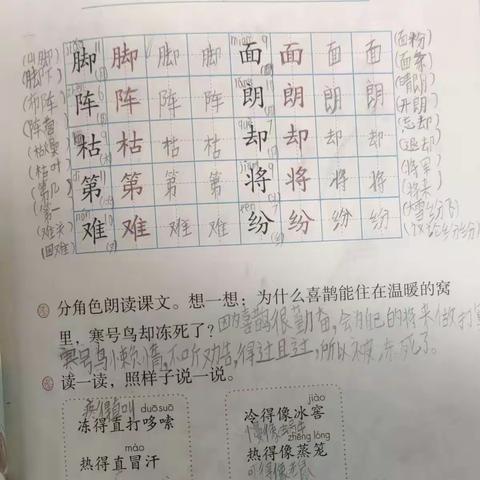 (山脚) 脚 脚 脚 脚 面 面 面 面 (面粉)
(脚下) (面条)
阵 阵 阵 阵 朗 朗 朗 朗 (晴朗)
(开朗)
枯 枯 枯 枯 却 却 却 却 (忘却)
(枯叶) (退却)
第 第 第 第 将 将 将 将 (将军)
(第一 (将来)
难 难 难 难 纷 纷 纷 纷
(困难)
分角色朗读课文。想一想：为什么喜鹊能住在温暖的窝
里，寒号鸟却冻死了？因为喜鹊很勤奋，会为自己的将来做打
寒号鸟懒惰，不听劝告，得过且过，所以被冻死了。
读一读，照样子说一说。
疼得直叫 duō suō jiào
冻得直打哆嗦 冷得像冰窖
mào zhēng lóng
热得直冒汗 热得像蒸笼